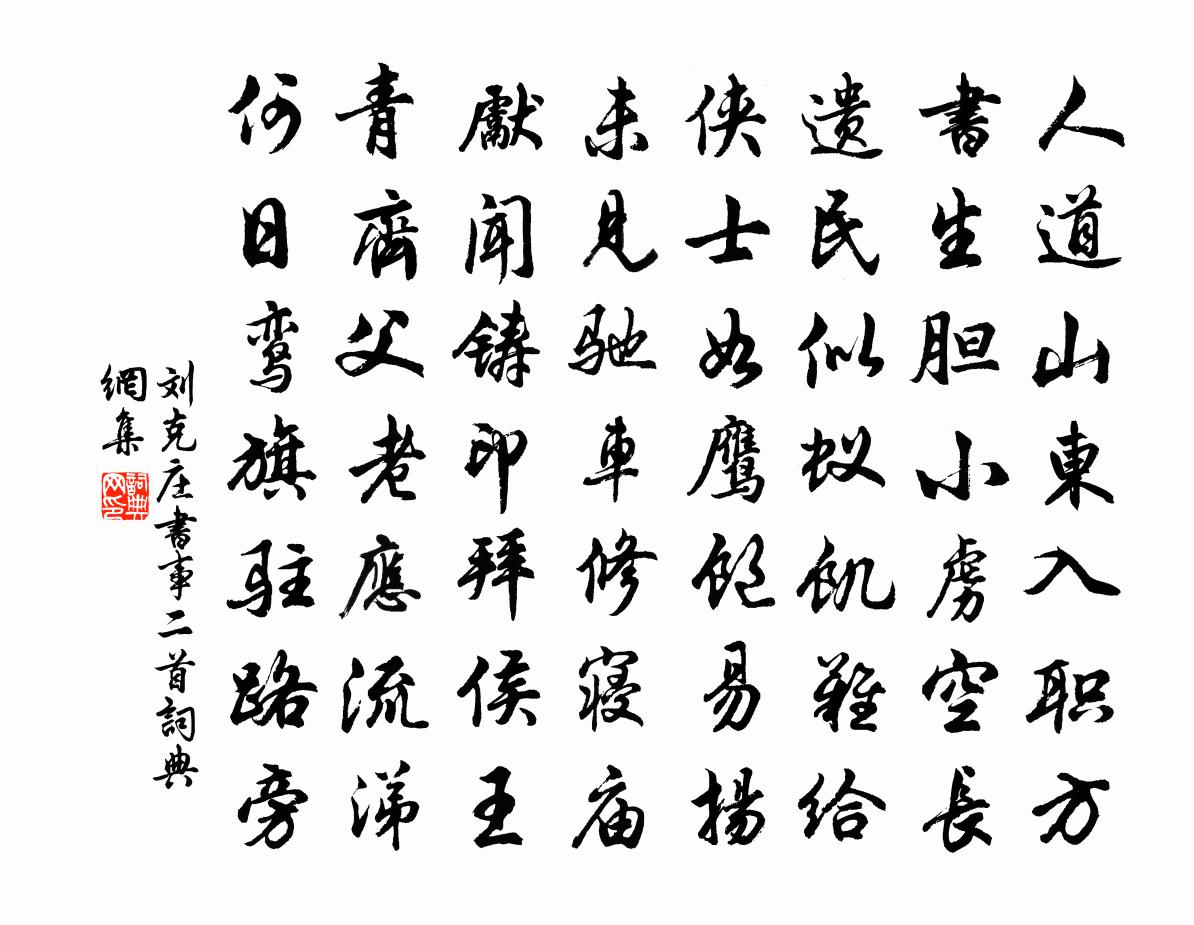 人道山東入职方
書生胆小虜空長
遗民似蚁飢難给
侠士如鹰飽易揚
未見驰車修寝庙
獻聞铸印拜侯王
青齊父老應流涕
何日鸾旗駐路旁
刘克庄書事二首詞典
網集
詞典
网印